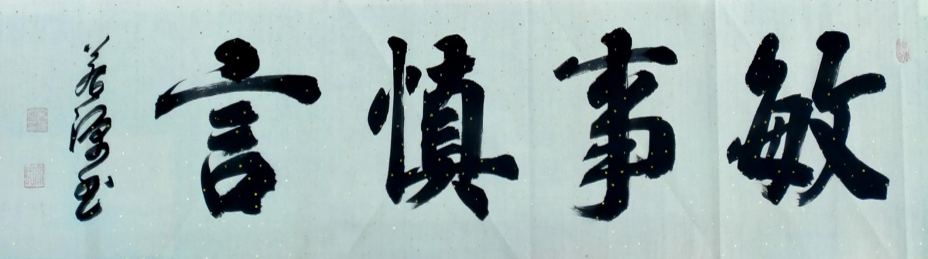 敏事慎言